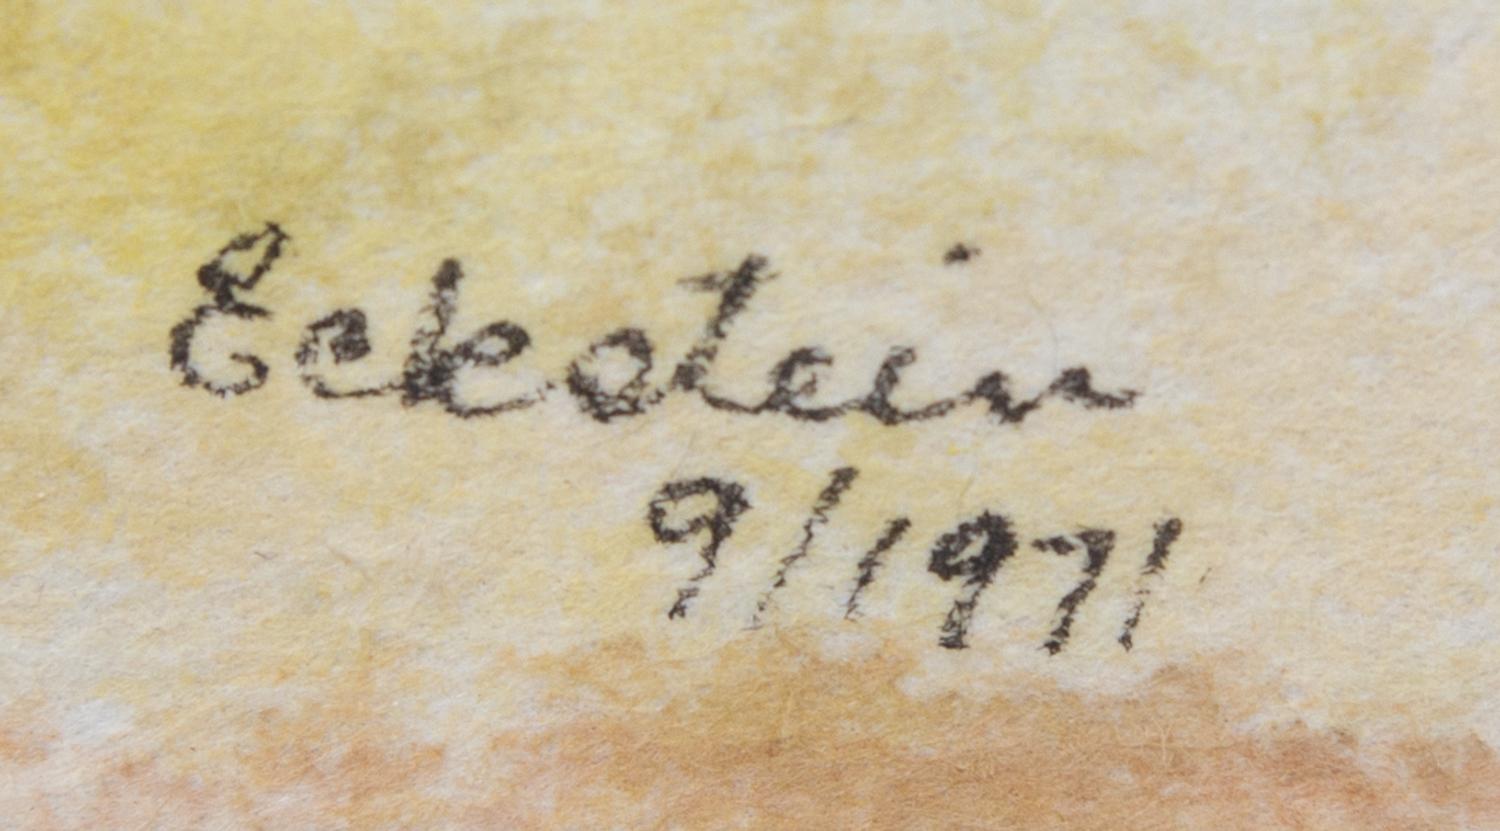 Eckstein
9/1971